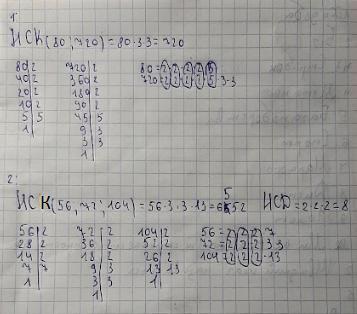 1.
НСК(80; 720) = 80·3·3 = 720
80|2 720|2 80=2·2·2·2·5
40|2 360|2 720=2·2·2·2·5·3·3
20|2 180|2
10|2 90|2
5|5 45|5
1| 9|3
3|3
1|
2.
НСК(56, 72, 104) = 56·3·3·13 = 6552 НСD = 2·2·2 = 8
56|2 72|2 104|2 56=2·2·2·7
28|2 36|2 52|2 72=2·2·2·3·3
14|2 18|2 26|2 104=2·2·2·13
7|7 9|3 13|13
1| 3|3 1|
1|